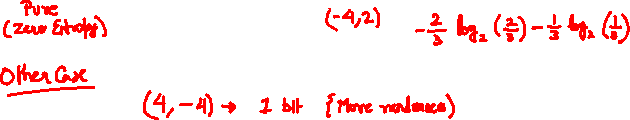 Pure
(Zero Entropy) (-4,2) -2/3 log₂ (2/3) - 1/3 log₂ (1/3)
Other Case
(4,-4) → 1 bit {More randomness)